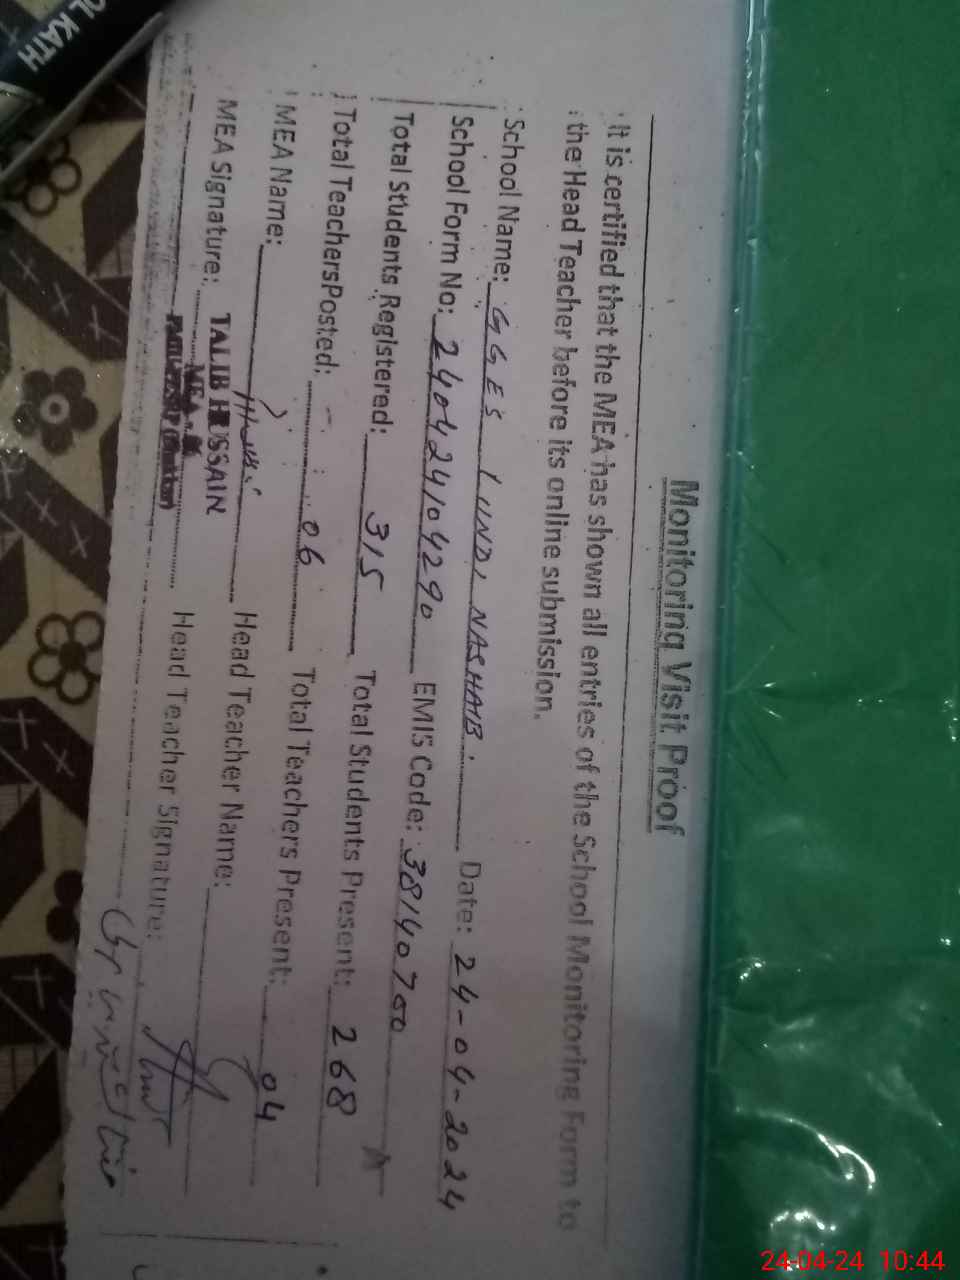 Monitoring Visit Proof
It is certified that the MEA has shown all entries of the School Monitoring Form to
the Head Teacher before its online submission.
School Name: GGES LUNDI NASHAIB. Date: 24-04-2024
School Form No: 240424104290 EMIS Code: 38140700
Total Students Registered: 315 Total Students Present: 268
Total Teachers Posted: 06 Total Teachers Present: 04
MEA Name: Head Teacher Name:
MEA Signature: TALIB HUSSAIN Head Teacher Signature:
MEA
OL KATH
24-04-24 10:44